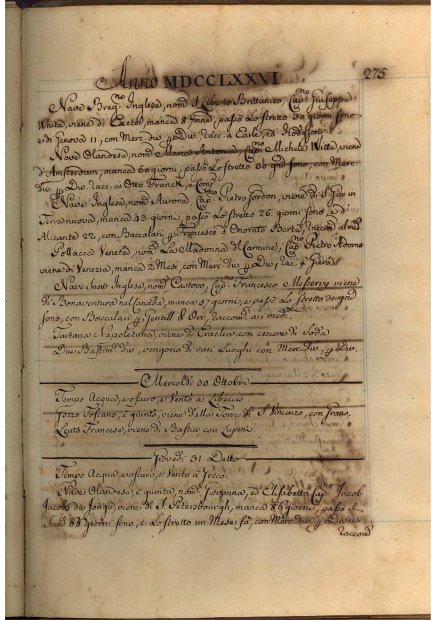 Anno MDCCLXXVI. 275
Nave Breg.no Inglese, nom.o il Liberto Brittanico, Cap.no Giuseppe
White, viene di manca 8 passò lo Stretto 30 giorni sono
e di Genova 11, con Merc. div. p. Div. Racc. a Carlo, ed
Nave Olandese, nom. Marco Antonio, Cap.no Michele Witte, viene
d'Amsterdam, manca 60 giorni, passò lo Stretto 36 gni sono, con Merc.
div. p. Div. Racc. a Otto Franck, e Comp.
Nave Inglese, nom. Aurora, Cap.no Pietro Jordon, viene di S. in
Terra nuova, manca 45 giorni, passò lo Stretto 26 giorni sono, e d'
Alicante 22, con Baccalari p. Francesco d'Onorato Berte, Raccom. al med.
Pollacca Veneta, nom. La Madonna del Carmine, Cap.no Pietro Adomo
viene di Venezia, manca 2 Mesi, con Merc. div. p. Div. Rac. a
Nave Snow Inglese, nom. Castoro, Cap.no Francesco viene
di Bonaventura nel Canadà, manca 57 giorni, e passò lo Stretto 30 gni
sono, con Baccalari p. Jentill & Orr, Raccom. ai med.
Tartana Napoletana, viene di con cenere di Soda
Due Bastim. div. vengono di vari Luoghi con Merc. div. p. Div.
Mercoledì 30 Ottobre
Tempo Acqua, e oscuro, e Vento a Libeccio
Gozzo Toscano, è giunto, viene dalla Torre di S. Vincenzo, con Grano,
Leuto Francese, viene di Bastia con Lupini.
Giovedì 31. Detto
Tempo Acqua, e oscuro, e Vento a
Nave Olandese, è giunta, nom. Giovanna, ed Elisabetta Cap.no Jacob
Jacobs de Jonge, viene di S. Petersbourgh, manca 86 giorni, passò il
Sund 68 giorni sono, e lo Stretto un Mese fà, con Merc. div. p. Diversi
Raccom.